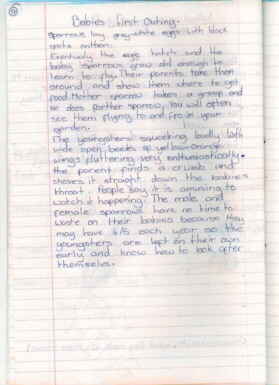 Babies first Outing.
Sparrows lay grey-white eggs with black
spots pattern.
Eventually the eggs hatch and the
baby sparrows grow old enough to
learn to fly. Their parents take them
around and show them where to get
food. Mother sparrow takes a group and
so does farther sparrow, You will often
see them flying to and fro in your
garden.
The youngsters squeeking loudly, both
wide open beaks of yellow-orange
wings fluttering very enthusiastically.
the parent finds a crumb and
shoves it straight down the babies
throat. People say it is amusing to
watch it happening. The male and
female sparrows have no time to
waste on their babies because they
may have 4/5 each year so the
youngsters are left on their own
early and know how to look after
themselves.